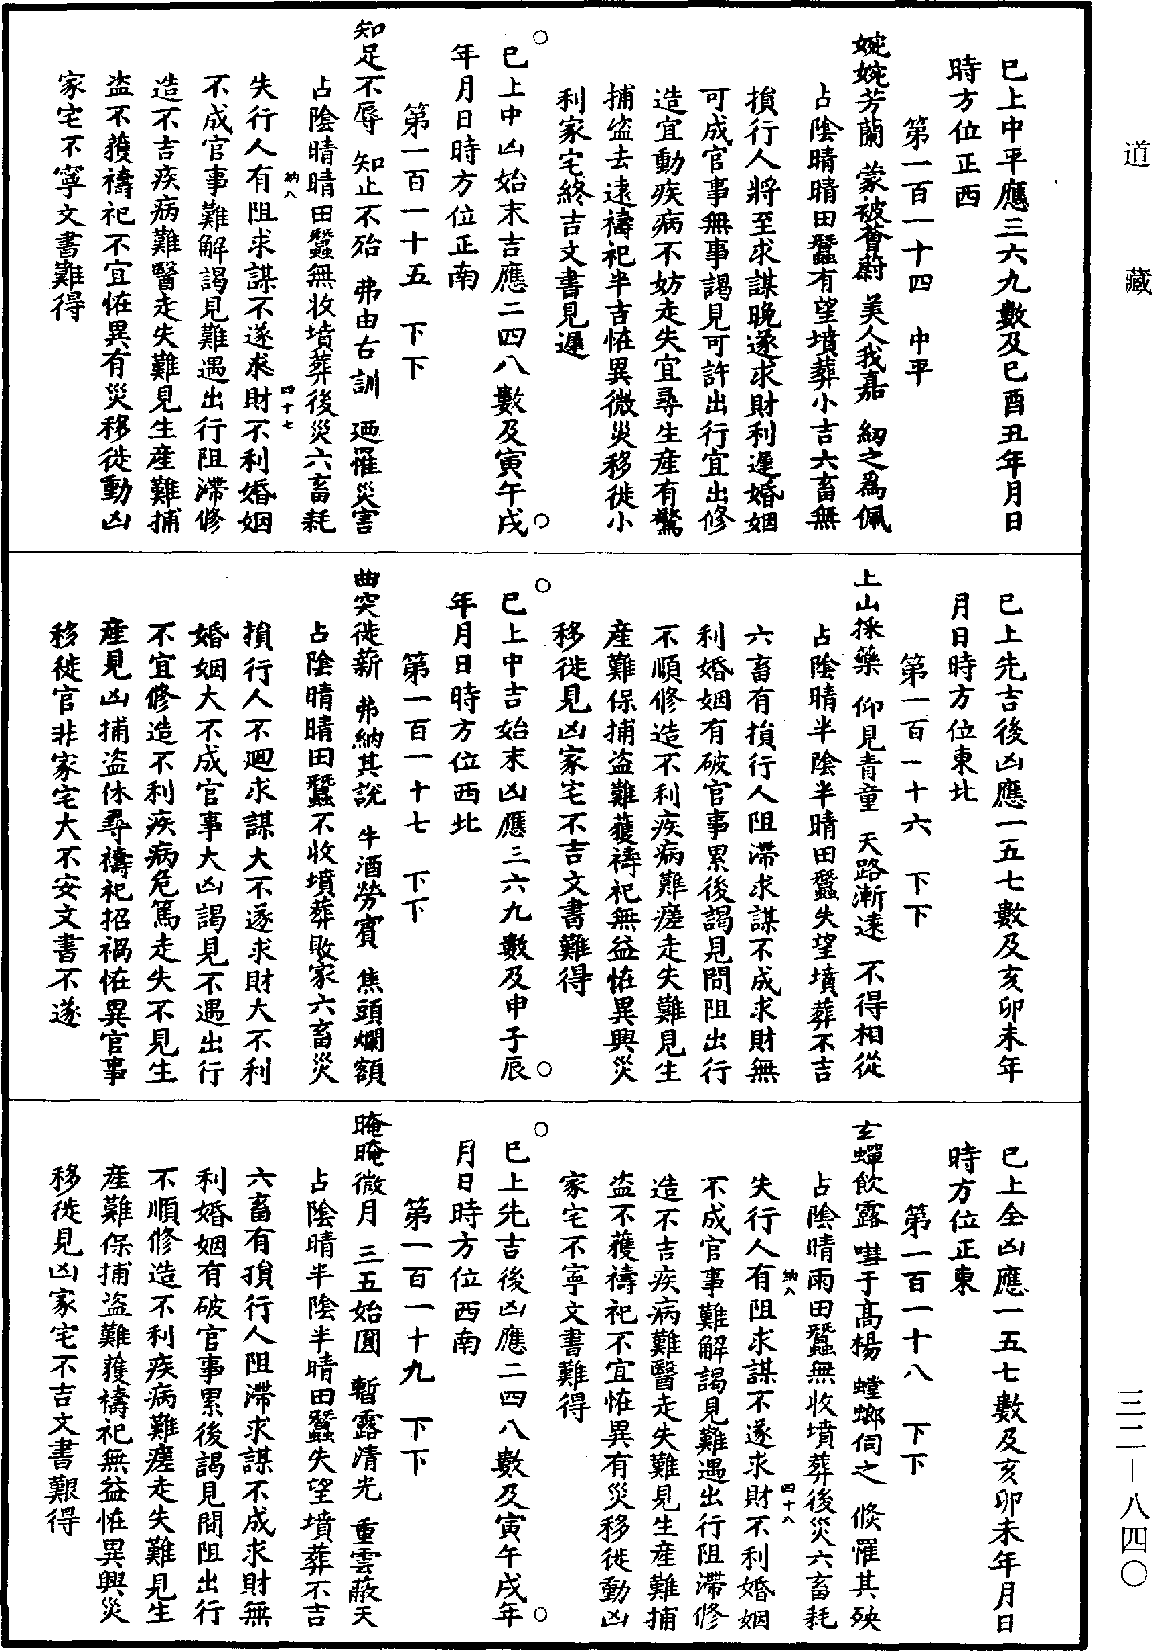 道藏
三二—八四〇
已上中平應三六九數及巳酉丑年月日
時方位正西
第一百一十四　中平
婉婉芳蘭　蒙被薈蔚　美人我嘉　紉之為佩
占陰晴晴田蠶有望墳葬小吉六畜無
損行人將至求謀晚遂求財利遲婚姻
可成官事無事謁見可許出行宜出修
造宜動疾病不妨走失宜尋生產有驚
捕盜去遠禱祀半吉恠異微災移徙小
利家宅終吉文書見遲
○
已上中凶始末吉應二四八數及寅午戌
○
年月日時方位正南
第一百一十五　下下
知足不辱　知止不殆　弗由古訓　迺罹災害
占陰晴晴田蠶無收墳葬後災六畜耗
納八
四十七
失行人有阻求謀不遂求財不利婚姻
不成官事難解謁見難遇出行阻滯修
造不吉疾病難醫走失難見生產難捕
盜不獲禱祀不宜恠異有災移徙動凶
家宅不寧文書難得
已上先吉後凶應一五七數及亥卯未年
月日時方位東北
第一百一十六　下下
上山採藥　仰見青童　天路漸遠　不得相從
占陰晴半陰半晴田蠶失望墳葬不吉
六畜有損行人阻滯求謀不成求財無
利婚姻有破官事累後謁見問阻出行
不順修造不利疾病難瘥走失難見生
產難保捕盜難獲禱祀無益恠異興災
移徙見凶家宅不吉文書難得
○
已上中吉始末凶應三六九數及申子辰
○
年月日時方位西北
第一百一十七　下下
曲突徙薪　弗納其說　牛酒勞賓　焦頭爛額
占陰晴晴田蠶不收墳葬敗家六畜災
損行人不迴求謀大不遂求財大不利
婚姻大不成官事大凶謁見不遇出行
不宜修造不利疾病危篤走失不見生
產見凶捕盜休尋禱祀招禍恠異官事
移徙官非家宅大不安文書不遂
已上全凶應一五七數及亥卯未年月日
時方位正東
第一百一十八　下下
玄蟬飲露　嘒于高楊　螳螂伺之　倏罹其殃
占陰晴雨田蠶無收墳葬後災六畜耗
納八
四十八
失行人有阻求謀不遂求財不利婚姻
不成官事難解謁見難遇出行阻滯修
造不吉疾病難醫走失難見生產難捕
盜不獲禱祀不宜恠異有災移徙動凶
家宅不寧文書難得
○
已上先吉後凶應二四八數及寅午戌年
○
月日時方位西南
第一百一十九　下下
晻晻微月　三五始圓　暫露清光　重雲蔽天
占陰晴半陰半晴田蠶失望墳葬不吉
六畜有損行人阻滯求謀不成求財無
利婚姻有破官事累後謁見問阻出行
不順修造不利疾病難瘥走失難見生
產難保捕盜難獲禱祀無益恠異興災
移徙見凶家宅不吉文書艱得